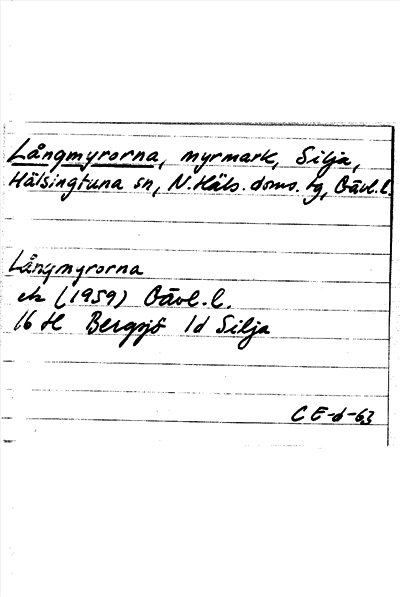 Långmyrorna, myrmark, Silja,
Hälsingtuna sn, N. Häls. doms. tg, Gävl. l.
Långmyrorna
ek (1959) Gävl. l.
16 H Bergsjö 1d Silja
CE-d-63